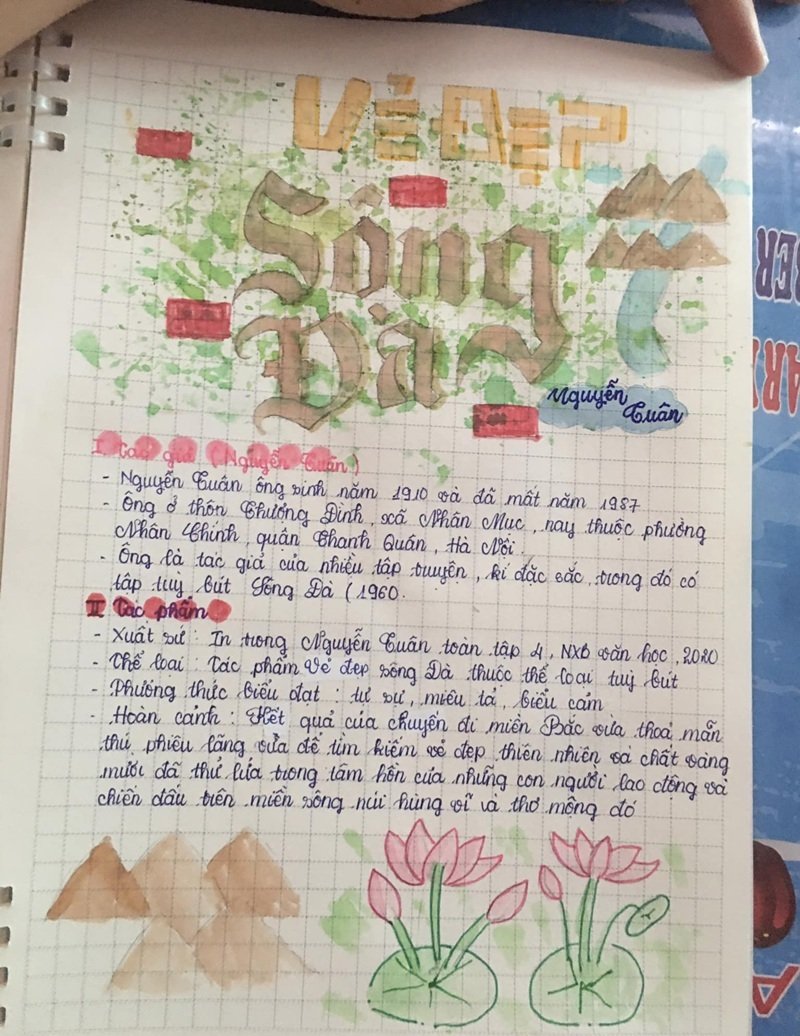 VẺ ĐẸP
Sông
Đà
Nguyễn
Tuân
I Tác giả (Nguyễn Tuân)
- Nguyễn Tuân ông sinh năm 1910 và đã mất năm 1987
- Ông ở thôn Thượng Đình, xã Nhân Mục, nay thuộc phường
Nhân Chính, quận Thanh Quán, Hà Nội.
- Ông là tác giả của nhiều tập truyện, kí đặc sắc, trong đó có
tập tuỳ bút Sông Đà (1960.
II Tác phẩm
- Xuất sứ: In trong Nguyễn Tuân toàn tập 4, NXB văn học, 2020
- Thể loại: Tác phẩm Vẻ đẹp sông Đà thuộc thể loại tuỳ bút
- Phương thức biểu đạt: tự sự, miêu tả, biểu cảm
- Hoàn cảnh: Kết quả của chuyến đi miền Bắc vừa thoả mãn
thú phiêu lãng vừa để tìm kiếm vẻ đẹp thiên nhiên và chất vàng
mười đã thử lửa trong tâm hồn của những con người lao động và
chiến đấu trên miền sông núi hùng vĩ và thơ mộng đó